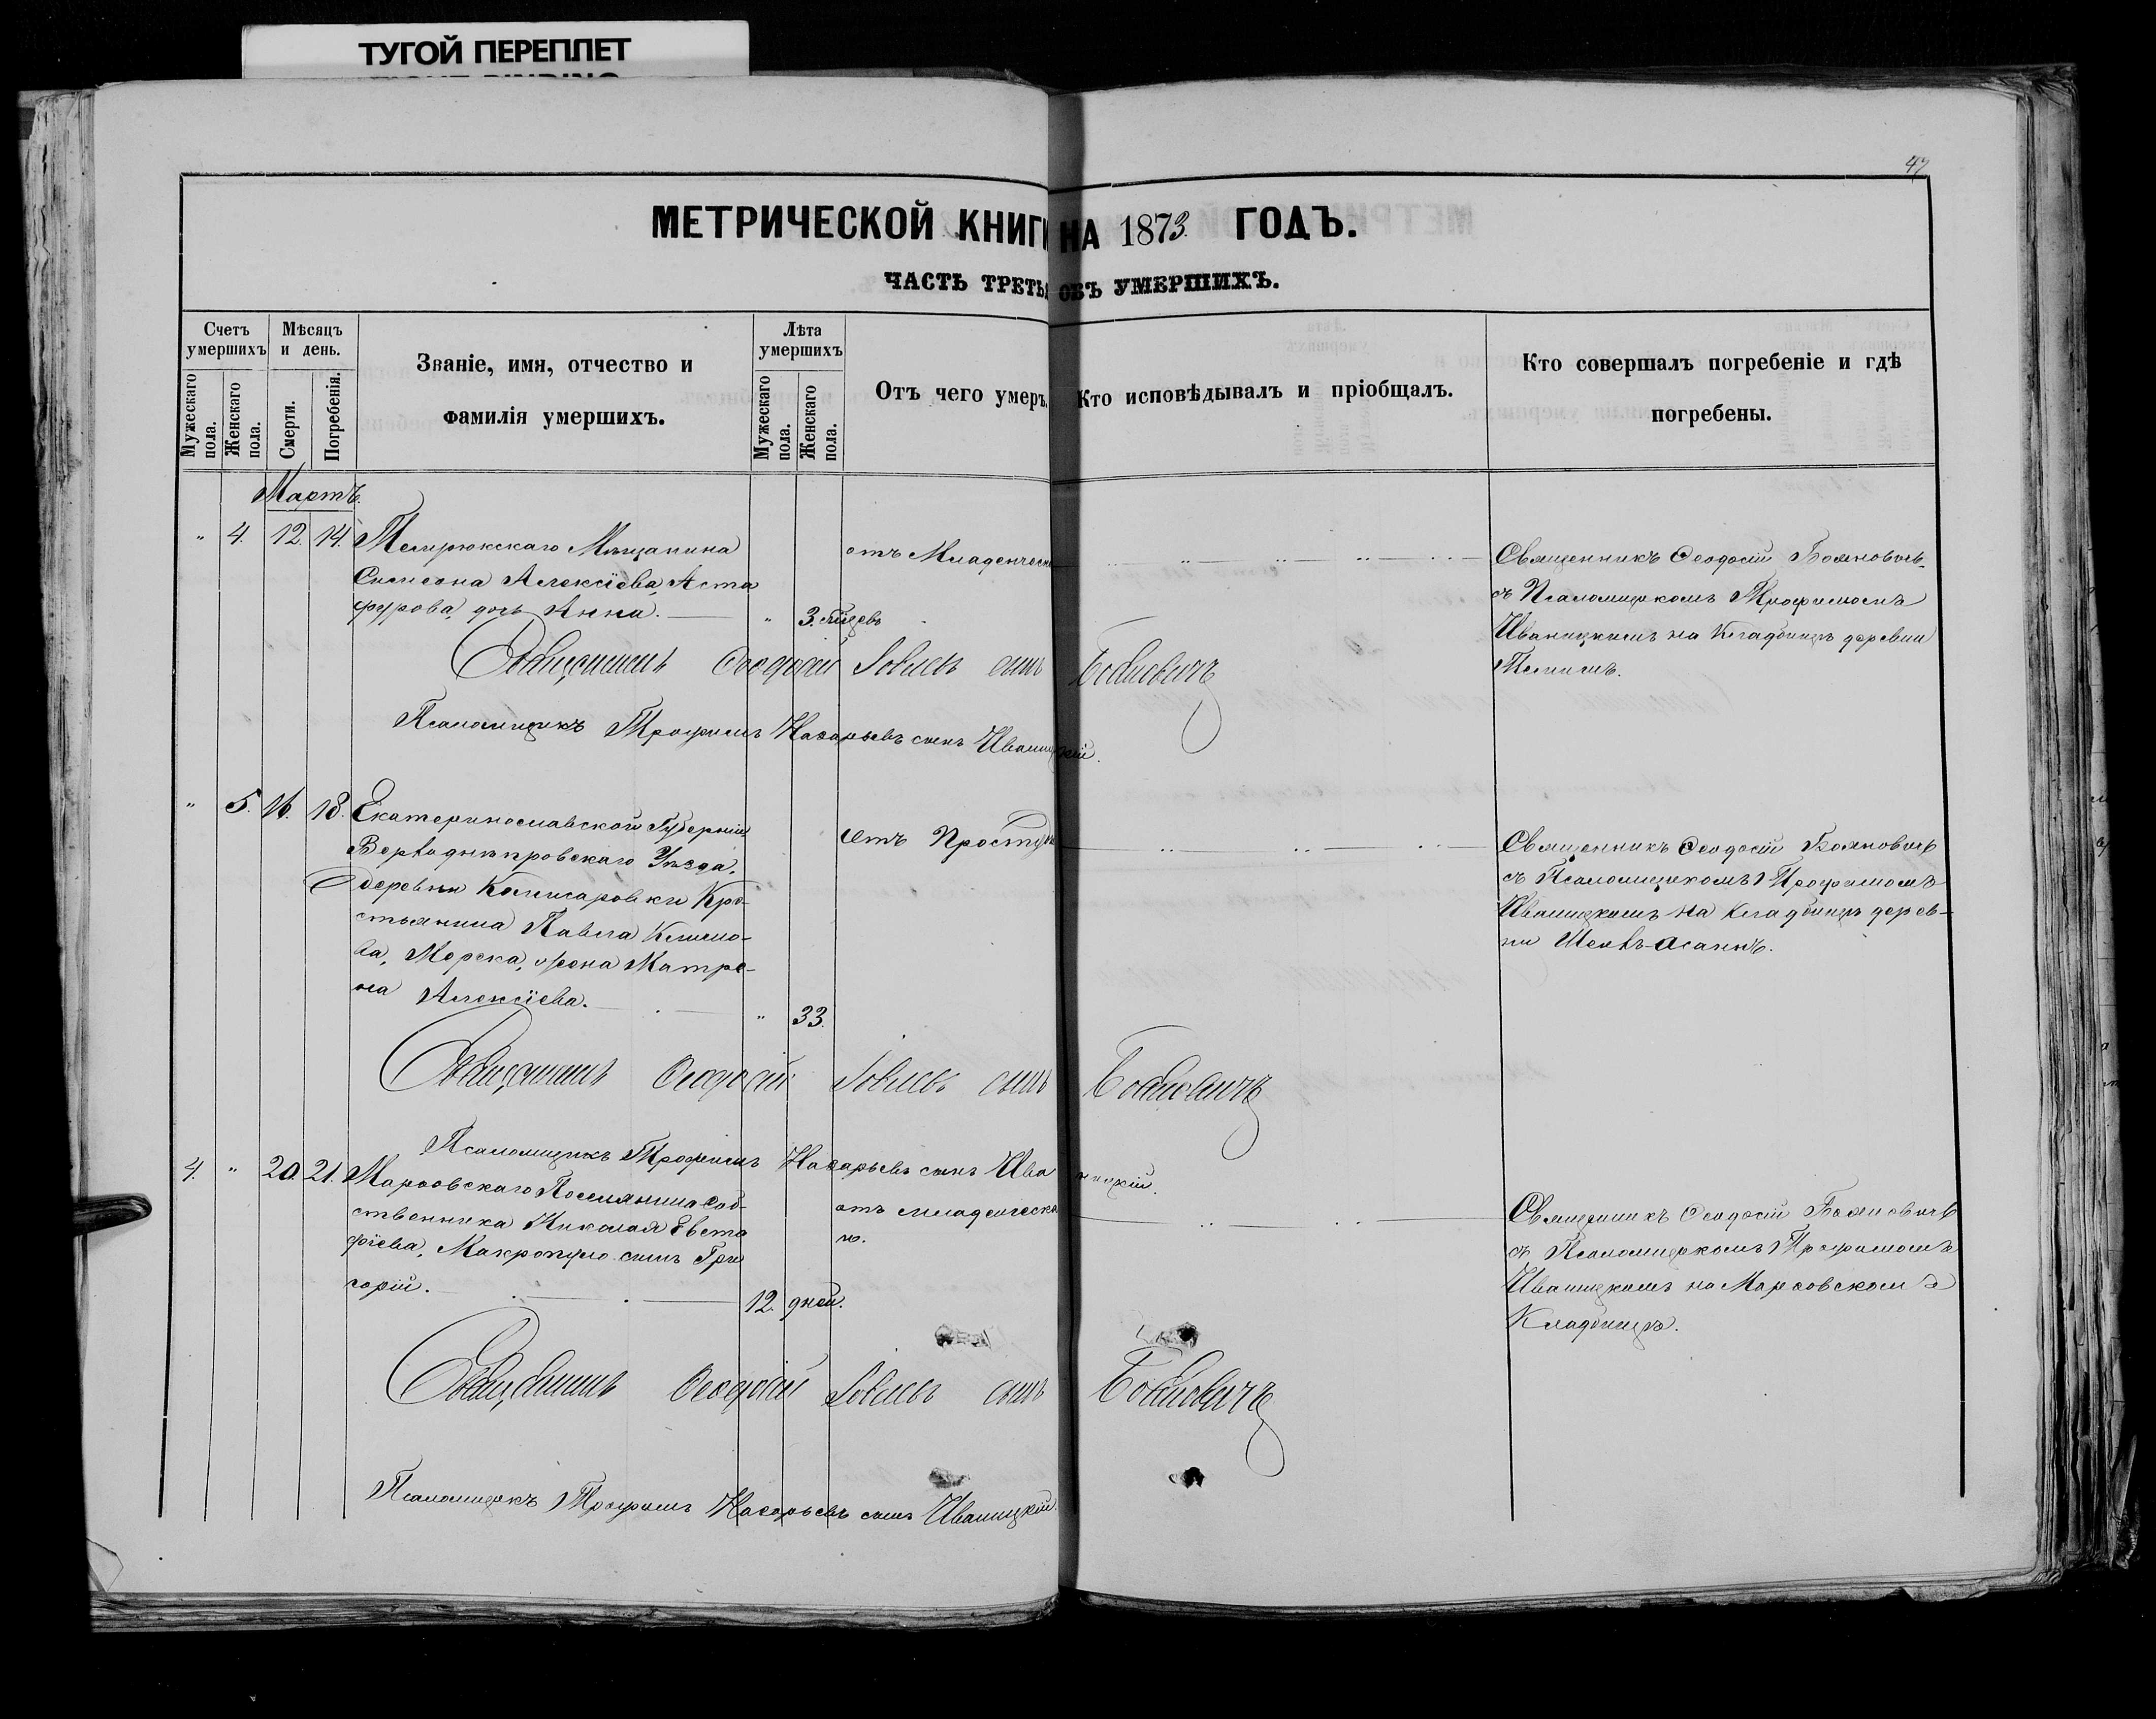 ТУГОЙ ПЕРЕПЛЕТ
47
МЕТРИЧЕСКОЙ КНИГИ НА 1873 ГОДЪ.
ЧАСТЬ ТРЕТЬЯ ОБЪ УМЕРШИХЪ.
Счетъ умершихъ
Мужескаго пола.
Женскаго пола.
Мѣсяцъ и день.
Смерти.
Погребенія.
Званіе, имя, отчество и
фамилія умершихъ.
Лѣта умершихъ
Мужескаго пола.
Женскаго пола.
Отъ чего умеръ.
Кто исповѣдывалъ и пріобщалъ.
Кто совершалъ погребеніе и гдѣ
погребены.
Мартъ.
" 4. 12. 14. Темрюкскаго Мѣщанина
Симеона Алексіева, Аста
фурова, дочь Анна. " 3.
отъ Младенческ
Священникъ Ѳеодосій Бояновичъ
съ Псаломщикомъ Трофимомъ
Иваницкимъ на Кладбищѣ деревни
Священникъ Ѳеодосій сынъ Бояновичъ
Псаломщикъ Трофимъ Назарьевъ сынъ Иваницкій.
" 5. 16. 18. Екатеринославской Губерніи
Верходнѣпровскаго Уѣзда,
деревни Комисаровки Кре-
стьянина Павла Климо-
ва, Морека, жена Матре-
на Алексіева. " 33.
Отъ Простуды
Священникъ Ѳеодосій Бояновичъ
съ Псаломщикомъ Трофимомъ
Иваницкимъ на Кладбищѣ дерев-
ни
Священникъ Ѳеодосій сынъ Бояновичъ
Псаломщикъ Трофимъ Назарьевъ сынъ Иваницкій.
4. " 20. 21. Марфовскаго Поселянина Соб-
ственника Николая Евста
фіева, Макропуло сынъ Гри
горій. 12. дней.
отъ младенческа
го.
Священникъ Ѳеодосій Бояновичъ
съ Псаломщикомъ Трофимомъ
Иваницкимъ на Марфовскомъ
Кладбищѣ.
Священникъ Ѳеодосій сынъ Бояновичъ
Псаломщикъ Трофимъ Назарьевъ сынъ Иваницкій.